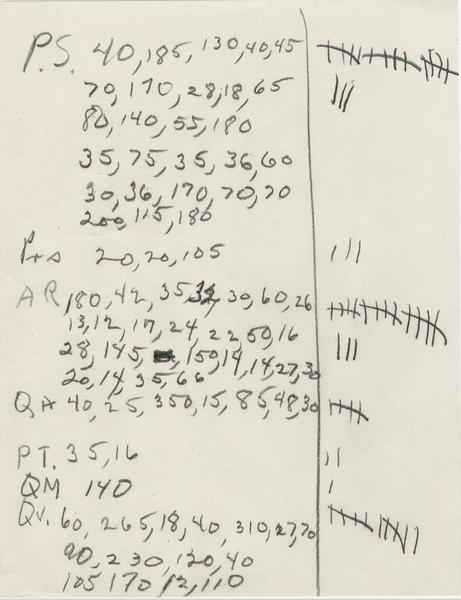 P.S. 40, 185, 130, 40, 45
70, 170, 28, 18, 65
80, 140, 55, 180
35, 75, 35, 36, 60
30, 36, 170, 70, 70
200, 115, 180
Pro 20, 20, 105
AR 180, 42, 35, 32, 30, 60, 26
13, 12, 17, 24, 22, 50, 16
28, 145, 150, 14, 14, 27, 30
20, 14, 35, 66
QA 40, 25, 350, 15, 85, 48, 30
PT. 35, 16
QM 140
QV. 60, 265, 18, 40, 310, 27, 70
90, 230, 120, 40
105 170 12, 110